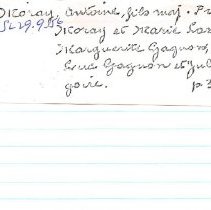 Moray, Antoine, fils maj. Pr
SL 29.9.56
Moray et Marie La
Marguerite Gagnon,
Luc Gagnon et Jul
goire. p.3